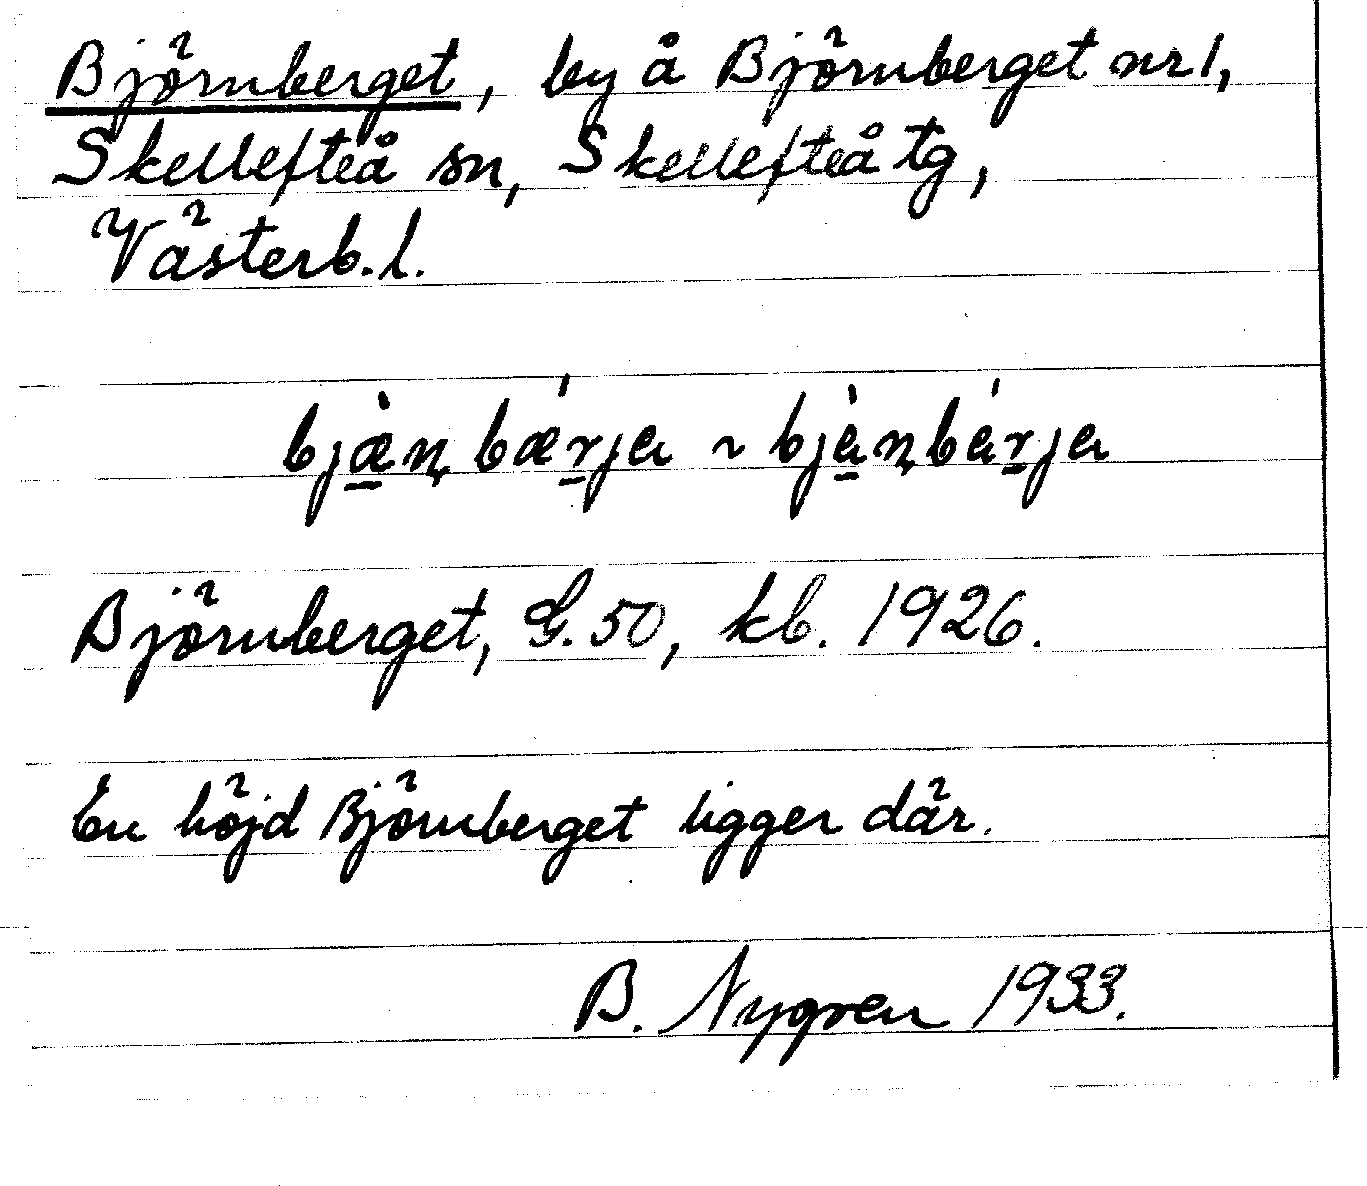 Björnberget, by å Björnberget nr 1,
Skellefteå sn, Skellefteå tg,
Västerb. l.
bjæ̀ṉbǽṟja ~ bjàṉbáṟja
Björnberget, G. 50, kb. 1926.
En höjd Björnberget ligger där.
B. Nygren 1933.